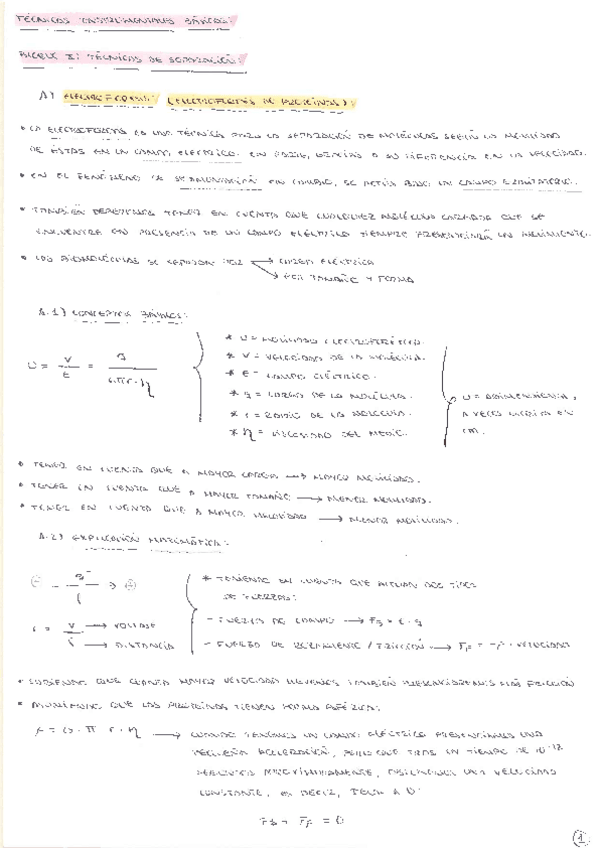 TÉCNICAS INSTRUMENTALES BÁSICAS:
BLOQUE I: TÉCNICAS DE SEPARACIÓN:
A) ELECTROFORESIS: (ELECTROFORESIS DE PROTEÍNAS):
• LA ELECTROFORESIS ES UNA TÉCNICA PARA LA SEPARACIÓN DE MOLÉCULAS SEGÚN LA MOVILIDAD
DE ÉSTAS EN UN CAMPO ELÉCTRICO. EN DEBIDO A SU DIFERENCIA EN LA VELOCIDAD.
• EN EL FENÓMENO DE SE ACTÚA BAJO UN CAMPO
• TAMBIÉN DEBEMOS TENER EN CUENTA QUE CUALQUIER MOLÉCULA CARGADA QUE SE
ENCUENTRA EN PRESENCIA DE UN CAMPO ELÉCTRICO SIEMPRE PRESENTARÁ UN MOVIMIENTO.
• LAS BIOMOLÉCULAS SE SEPARAN POR → CARGA ELÉCTRICA
→ POR TAMAÑO Y FORMA
A.1) CONCEPTOS BÁSICOS:
U = V/E = q/6·π·r·η
* U = MOVILIDAD ELECTROFORÉTICA.
* V = VELOCIDAD DE LA MOLÉCULA.
* E = CAMPO ELÉCTRICO.
* q = CARGA DE LA MOLÉCULA.
* r = RADIO DE LA MOLÉCULA.
* η = VISCOSIDAD DEL MEDIO.
U =
A VECES EN
cm.
• TENER EN CUENTA QUE A MAYOR CARGA → MAYOR MOVILIDAD.
• TENER EN CUENTA QUE A MAYOR TAMAÑO → MENOR MOVILIDAD.
• TENER EN CUENTA QUE A MAYOR → MENOR MOVILIDAD.
A.2) EXPLICACIÓN MATEMÁTICA:
* TENIENDO EN CUENTA QUE ACTÚAN DOS TIPOS
DE FUERZAS:
- FUERZA DE CAMPO → Fq = E·q
- FUERZA DE / FRICCIÓN → Ff = -f · VELOCIDAD
→ VOLTAJE
→ DISTANCIA
• QUE CUANTA MAYOR VELOCIDAD LLEVEMOS TAMBIÉN MÁS FRICCIÓN
• QUE LAS PROTEÍNAS TIENEN FORMA ESFÉRICA:
f = 6·π·r·η → CUANDO TENEMOS UN CAMPO ELÉCTRICO PRESENTAMOS UNA
PEQUEÑA ACELERACIÓN, PERO QUE TRAS UN TIEMPO DE
UNA VELOCIDAD
CONSTANTE, ES DECIR,
Fq - Ff = 0
1